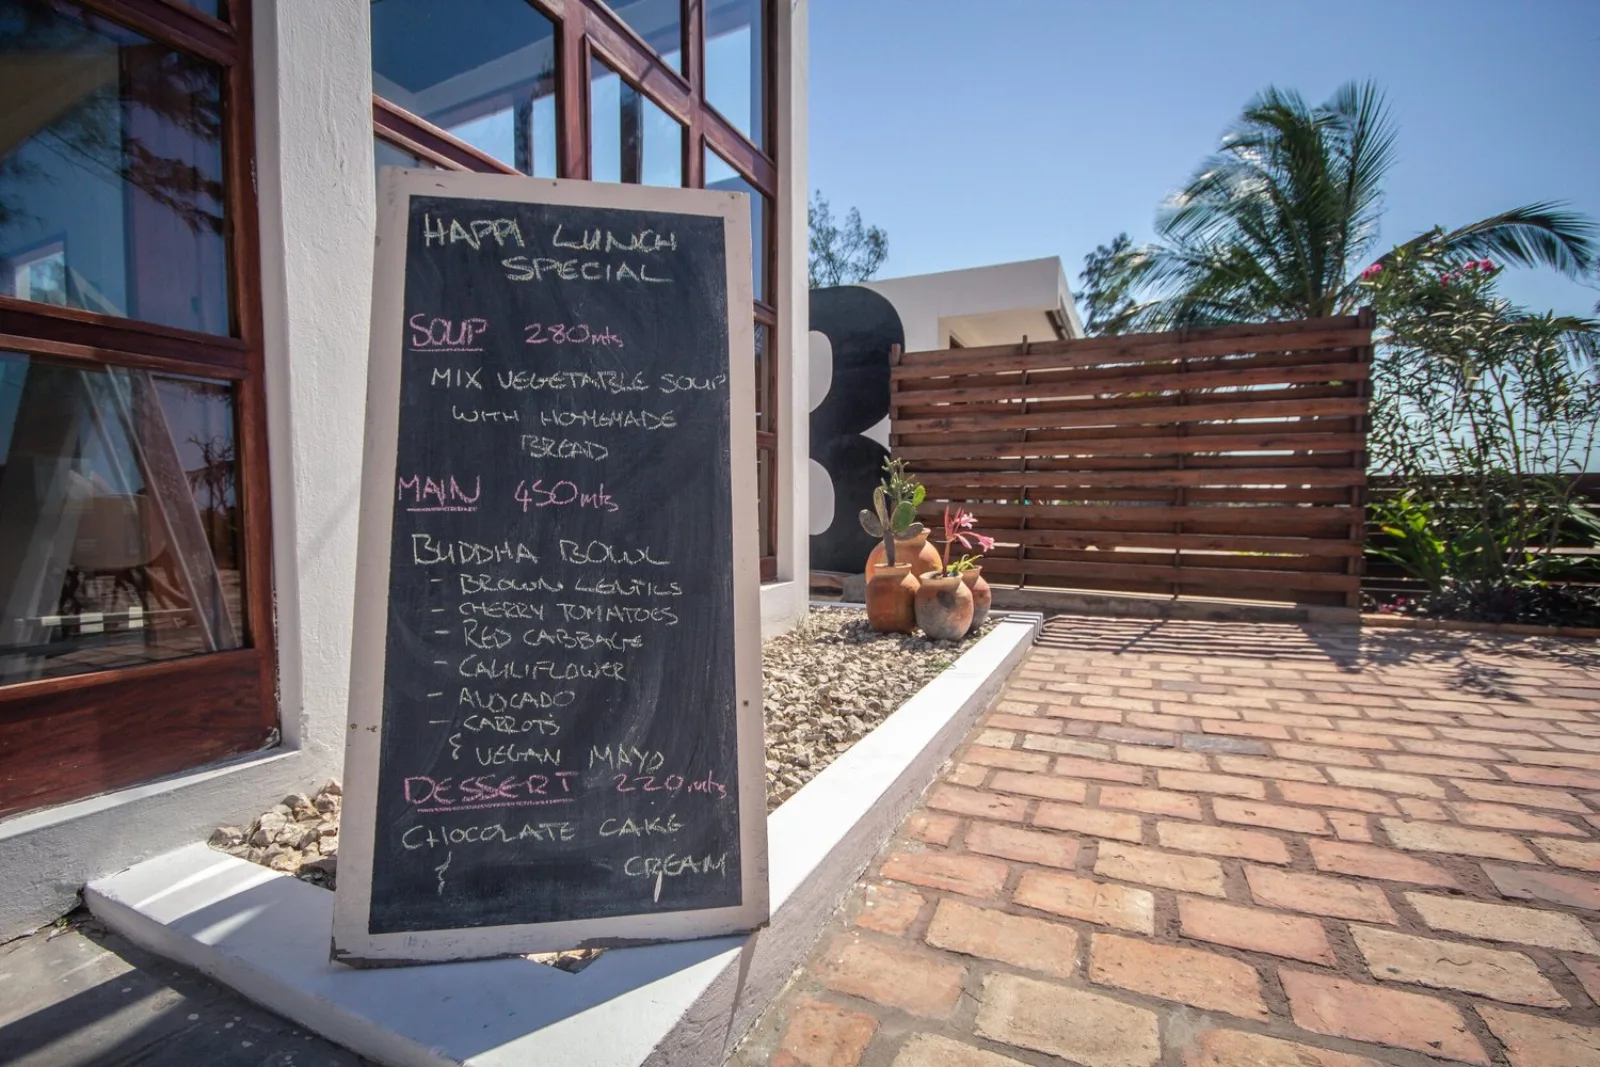 HAPPI LUNCH
SPECIAL
SOUP 280mts
MIX VEGETABLE SOUP
WITH HOMEMADE
BREAD
MAIN 450mts
BUDDHA BOWL
- BROWN LENTILS
- CHERRY TOMATOES
- RED CABBAGE
- CAULIFLOWER
- AVOCADO
- CARROTS
& VEGAN MAYO
DESSERT 220mts
CHOCOLATE CAKE
& CREAM